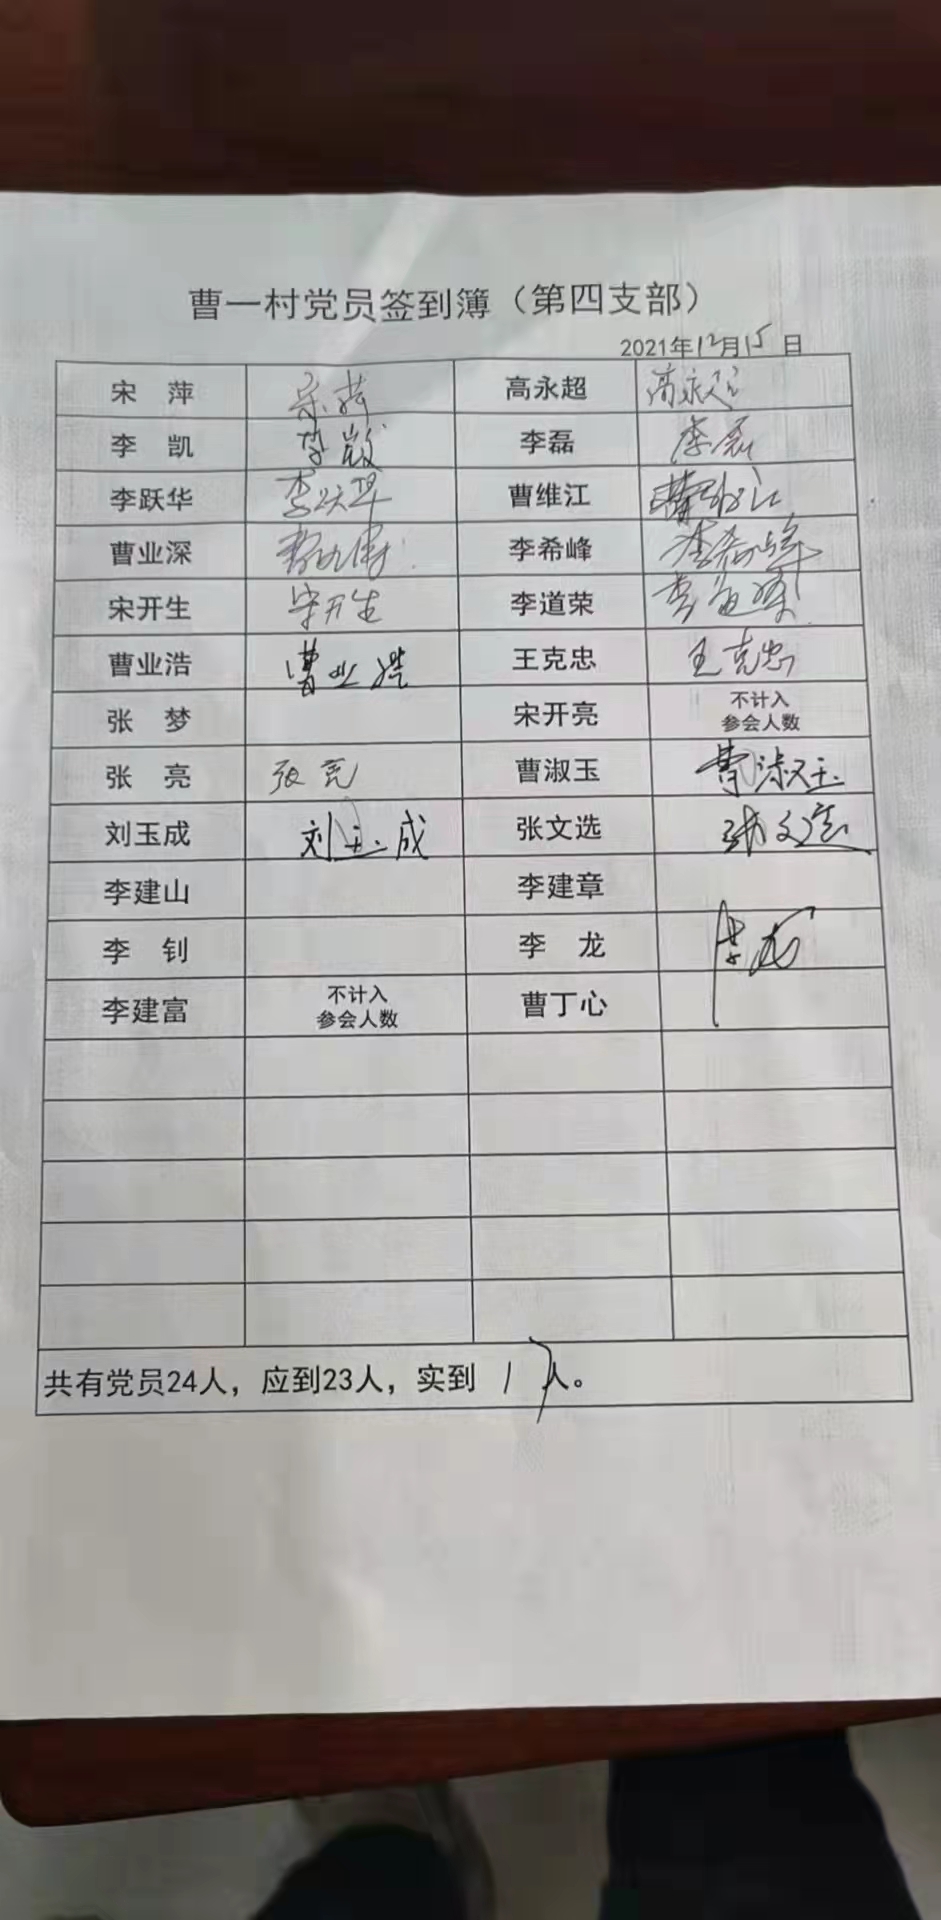 曹一村党员签到簿（第四支部）
2021年12月15日
宋 萍 宋萍 高永超 高永超
李 凯 李 李磊 李磊
李跃华 李跃华 曹维江 曹维江
曹业深 李希峰 李希峰
宋开生 宋开生 李道荣 李道荣
曹业浩 曹业浩 王克忠 王克忠
张 梦 宋开亮 不计入
参会人数
张 亮 张亮 曹淑玉 曹淑玉
刘玉成 刘玉成 张文选 张文选
李建山 李建章
李 钊 李 龙 李龙
李建富 不计入
参会人数 曹丁心
共有党员24人，应到23人，实到 17人。